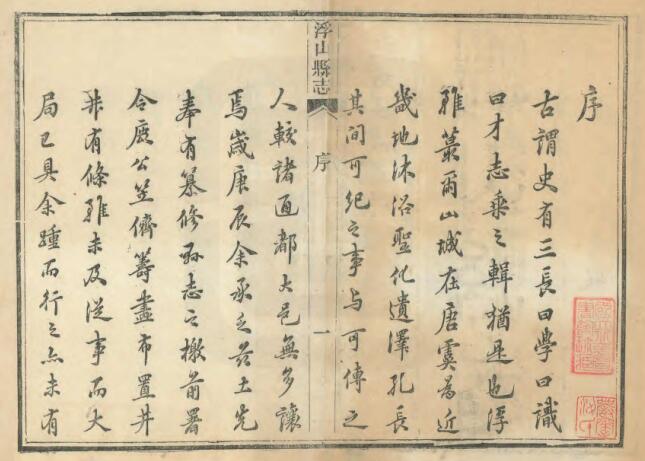 序
古謂史有三長曰學曰識
曰才志乘之輯猶是也浮
雖蕞爾山城在唐虞為近
畿地沐浴聖化遺澤孔長
其間可紀之事与可傳之
浮山縣志
序
一
人較諸通都大邑無多讓
焉歲庚辰余承乏茲土先
奉有纂修郡志之檄前署
令鹿公笠儕籌畫布置井
井有條雖未及從事而大
局已具余踵而行之亦未有